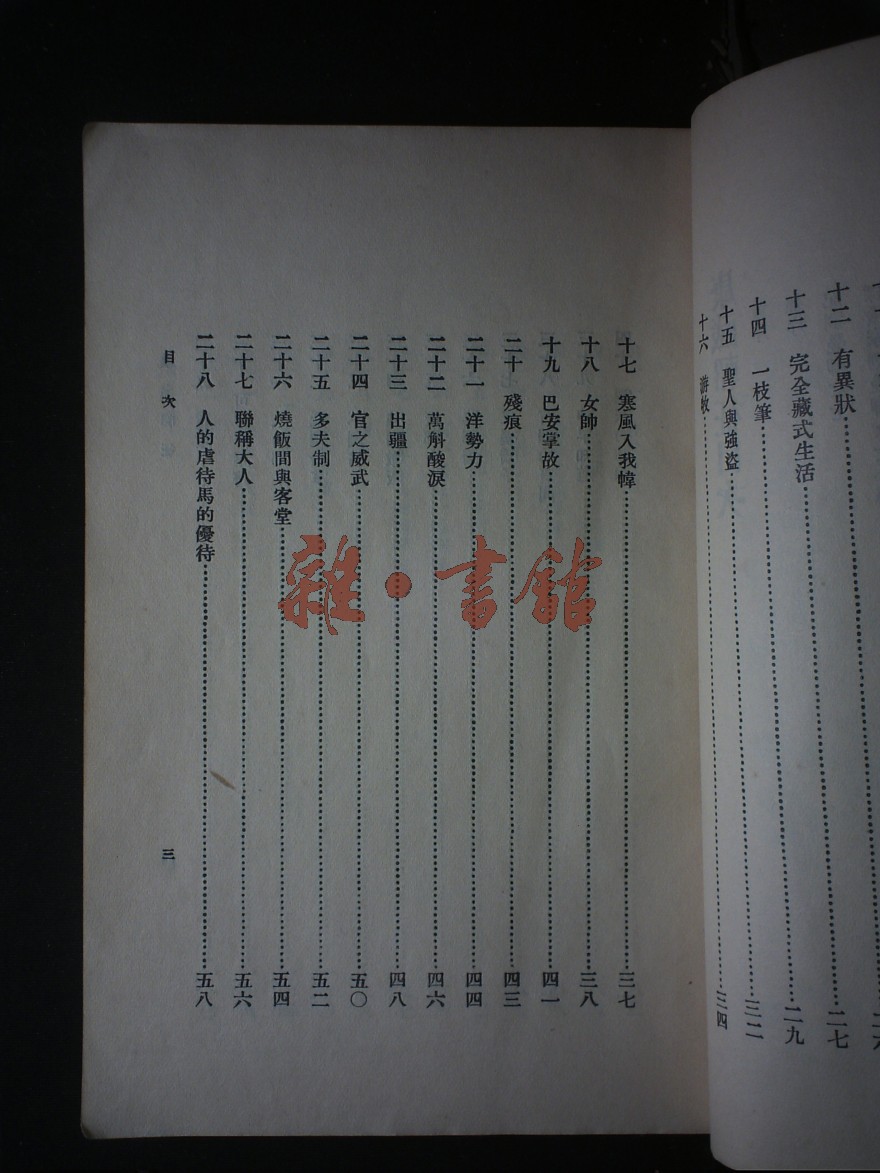 十二 有異狀……二七
十三 完全藏式生活……二九
十四 一枝筆……三二
十五 聖人與強盜……三四
十六 游牧……
十七 寒風入我幃……三七
十八 女帥……三八
十九 巴安掌故……四一
二十 殘痕……四三
二十一 洋勢力……四四
二十二 萬斛酸淚……四六
二十三 出疆……四八
二十四 官之威武……五〇
二十五 多夫制……五二
二十六 燒飯間與客堂……五四
二十七 聯稱大人……五六
二十八 人的虐待馬的優待……五八
目次
三
雜·書館